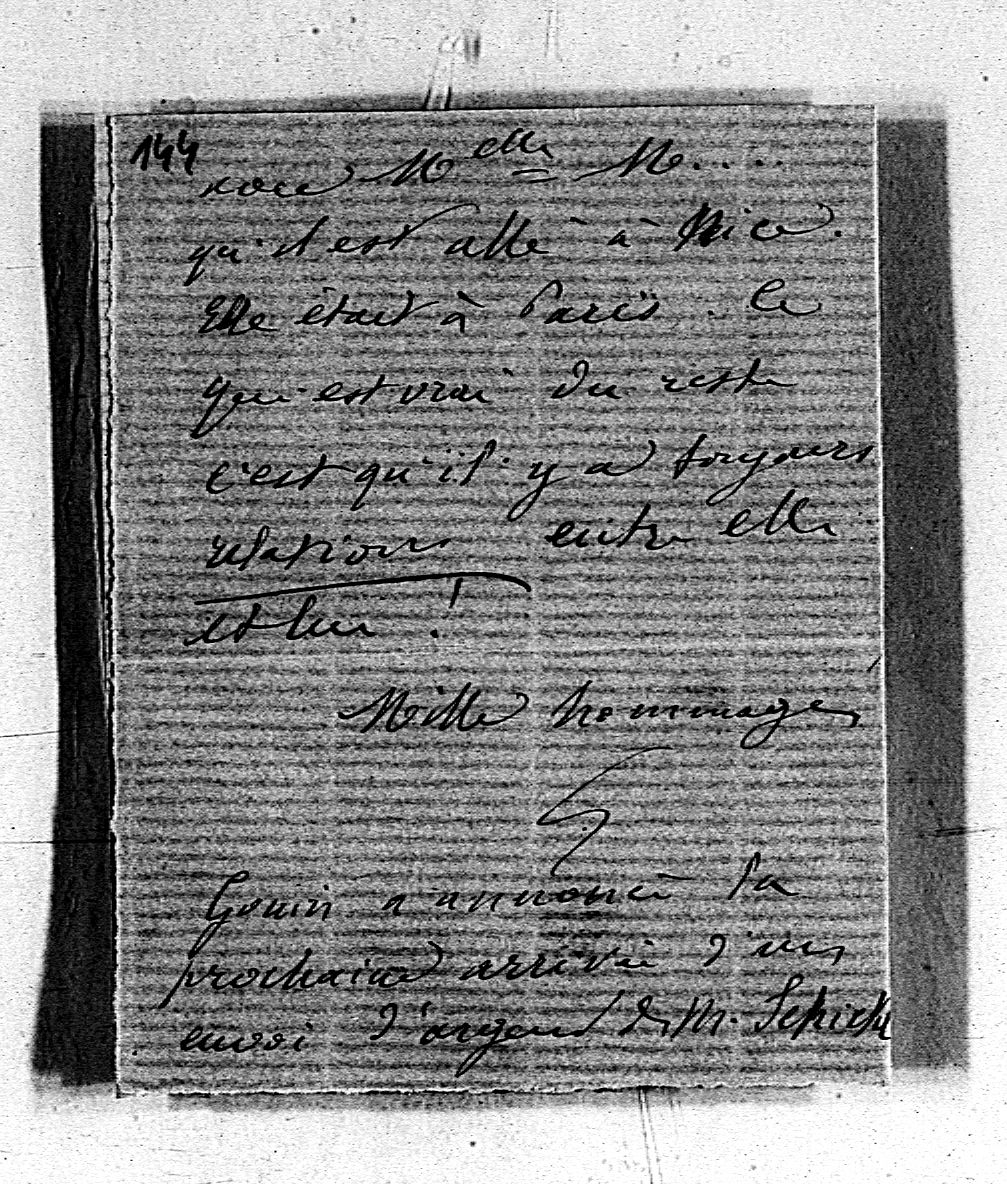 144
avec Melle M.....
qu'il est allé à Nice.
Elle était à Paris. Ce
qui est vrai du reste
c'est qu'il y a toujours
relations entre elle
et lui !
Mille hommages
Gouin a annoncé la
prochaine arrivée d'un
envoi d'argent de M.